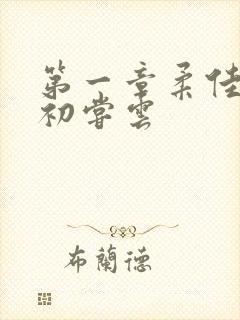 第一章柔佳
初嘗雲
布蘭德